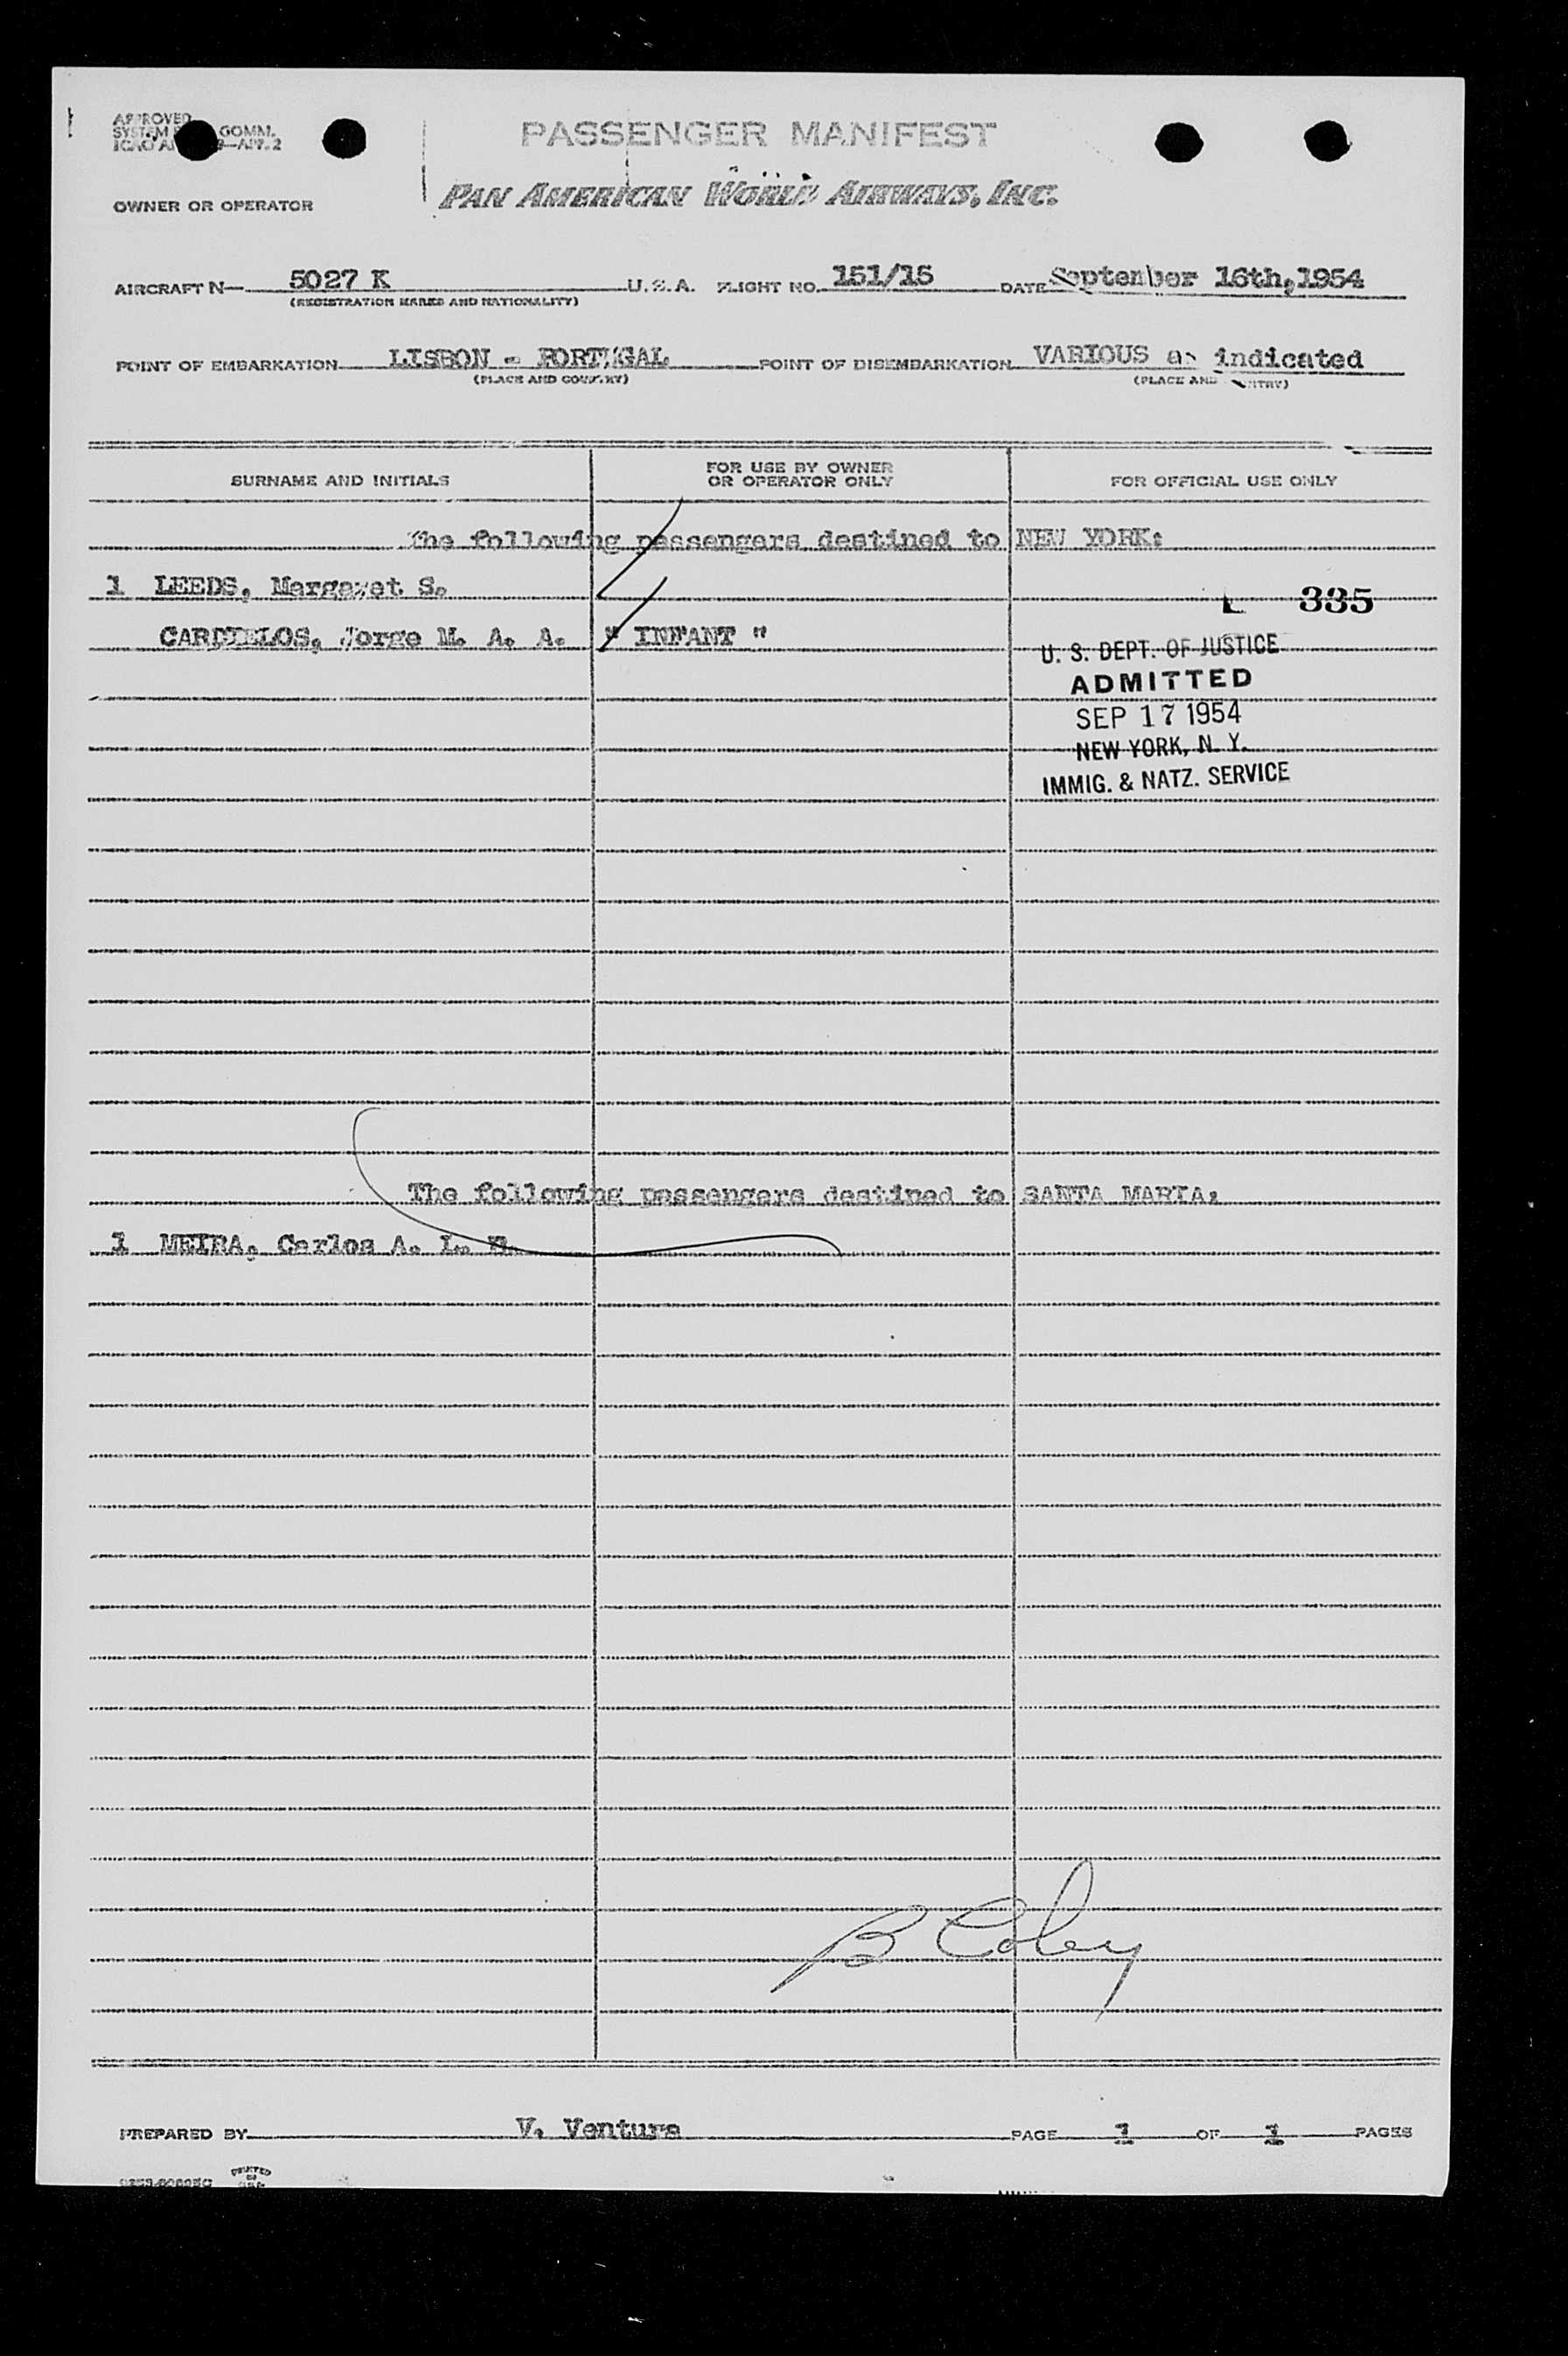 APPROVED
SYSTEM GOMM.
ICAO —APP. 2
PASSENGER MANIFEST
OWNER OR OPERATOR PAN AMERICAN WORLD AIRWAYS, INC.
AIRCRAFT N— 5027 K U.S.A. FLIGHT NO. 151/15 DATE September 16th,1954
(REGISTRATION MARKS AND NATIONALITY)
POINT OF EMBARKATION LISBON - PORTUGAL POINT OF DISEMBARKATION VARIOUS as indicated
(PLACE AND COUNTRY) (PLACE AND COUNTRY)
SURNAME AND INITIALS FOR USE BY OWNER OR OPERATOR ONLY FOR OFFICIAL USE ONLY
The following passengers destined to NEW YORK:
1 LEEDS, Margaret S.
L 335
CARDIELOS, Jorge M. A. A. " INFANT "
U. S. DEPT. OF JUSTICE
ADMITTED
SEP 17 1954
NEW YORK, N. Y.
IMMIG. & NATZ. SERVICE
The following passengers destined to SANTA MARIA:
1 MEIRA, Carlos A. L.
B Coley
PREPARED BY V. Ventura PAGE 1 OF 1 PAGES
PRINTED
IN
U.S.A.